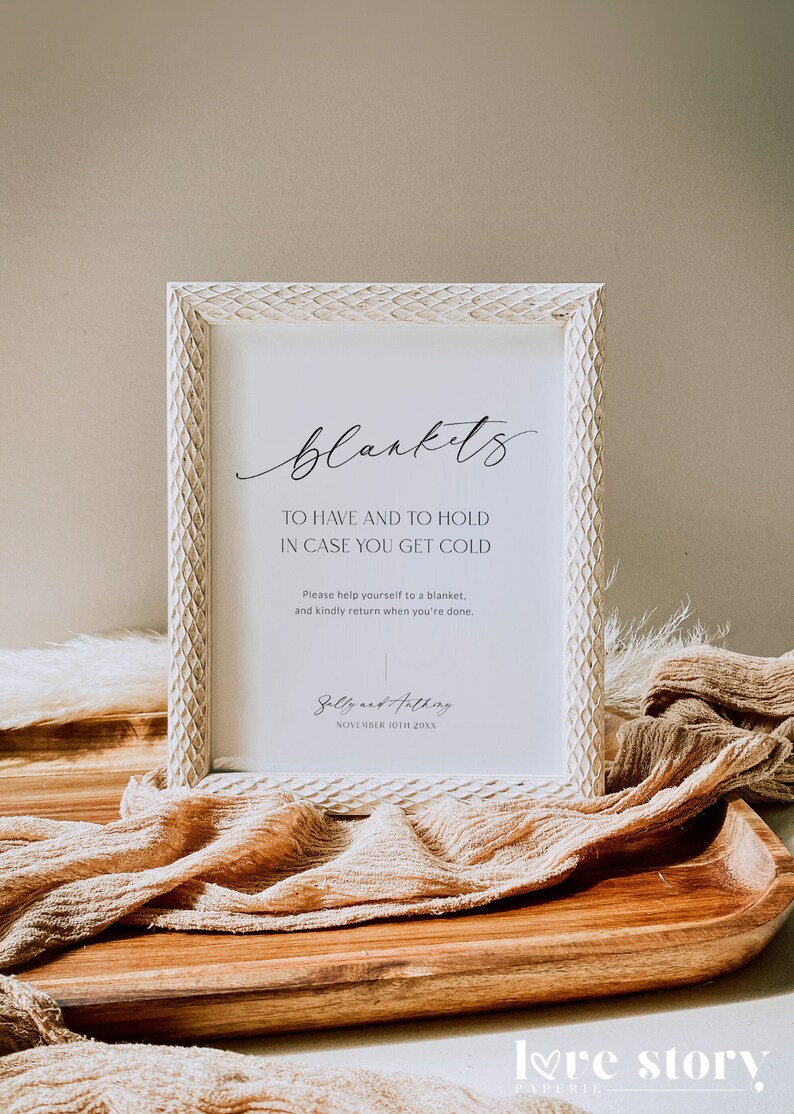 blankets
TO HAVE AND TO HOLD
IN CASE YOU GET COLD
Please help yourself to a blanket,
and kindly return when you're done.
Sally and Anthony
NOVEMBER 10TH 20XX
love story
PAPERIE